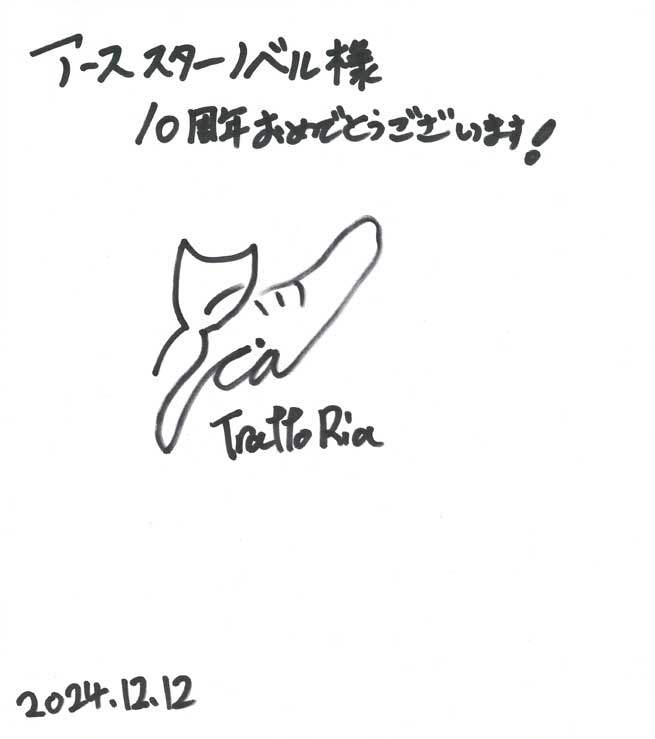 アース スターノベル様
10周年おめでとうございます!
ca
Tratto Ria
2024.12.12